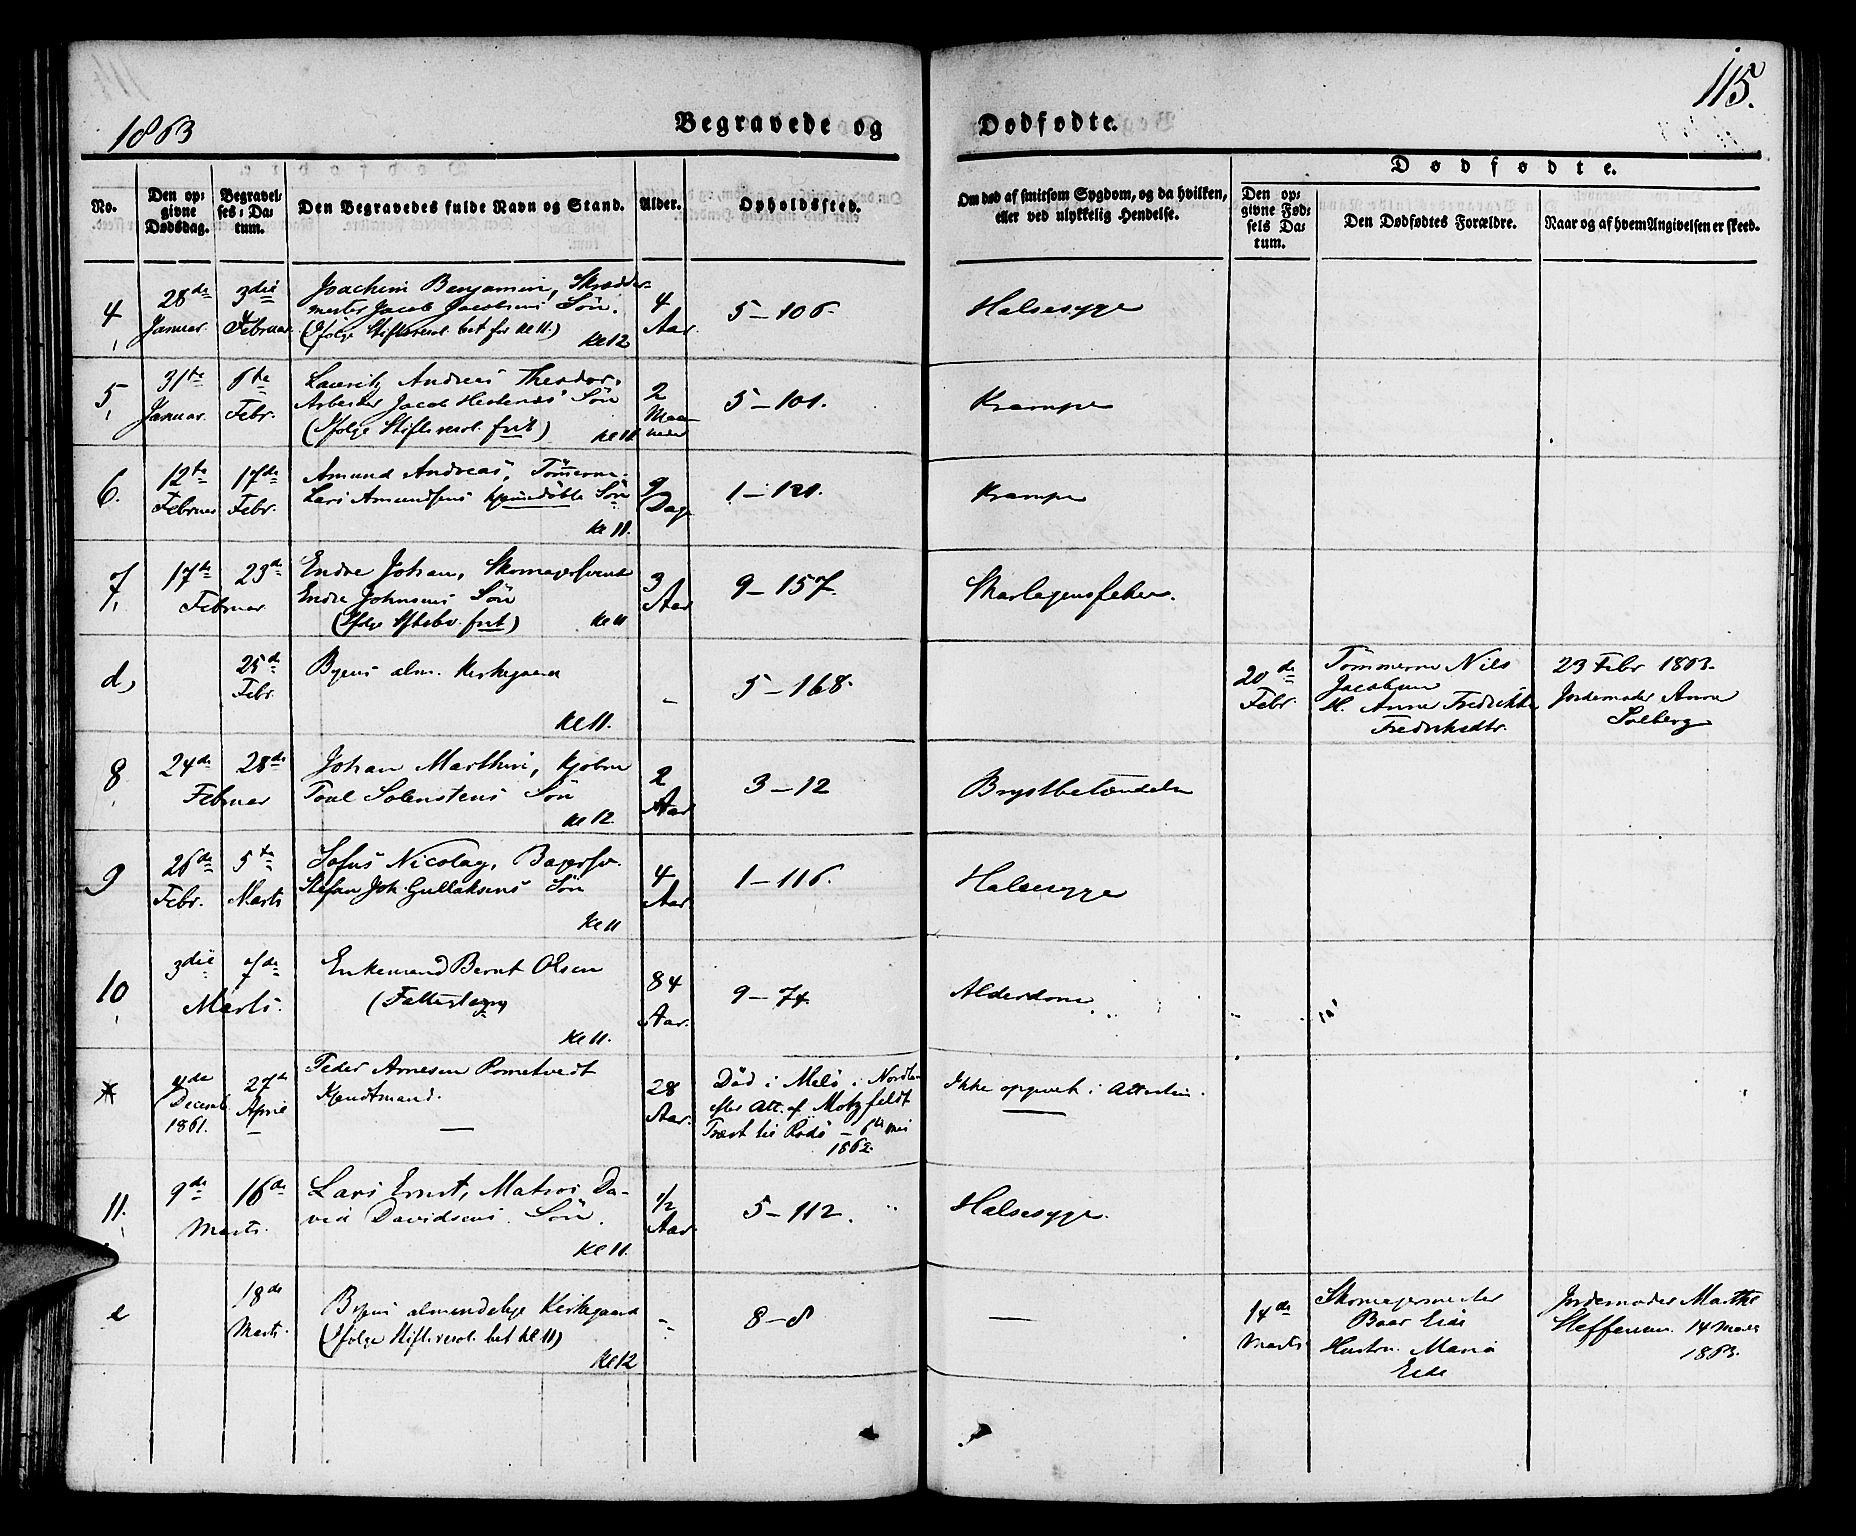 115.
1863
Begravede og Dødfødte.
Dødfødte.
No.
Den opgivne Dødsdag.
Begravelses-Datum.
Den Begravedes fulde Navn og Stand.
Alder.
Opholdssted.
Om død af smitsom Sygdom, og da hvilken, eller ved ulykkelig Hendelse.
Den opgivne Fødsels Datum.
Den Dødfødtes Forældre.
Naar og af hvem Angivelsen er skeed.
4
28de Januar.
3die Februar
Joachim Benjamin, Skrædder-
mester Jacob Jacobsens Søn.
(Ifølge Stiftsresol. bet for Kl 11.)
Kl 12
4 Aar.
5 – 106.
Halsesyge
5
31te Januar.
6te Febr.
Lauritz Andreas Theodor,
Arbeider Jacob Søn
(Ifølge Stiftsresol. frit)
Kl 11
2 Maaneder
5 – 101.
Krampe
6.
12te Februar
17de Febr.
Amund Andreas, Tømmerm.
Lars Amundsens hjemedøbte Søn
Kl 11.
9 Dage
1 – 121.
Krampe
7
17de
23de
Februar
Endre Johan, Skomagersvend
Endre Johnsens Søn
(Ifølge frit)
Kl 11
3 Aar
9 – 157.
Skarlagensfeber.
d,
25de Febr.
Byens alm. Kirkegaard
Kl 11.
5 – 168.
20de Febr.
Tømmerm Nils
Jacobsen
H. Anne Fredrikke
Fredriksdtr.
23 Febr 1863.
Jordemoder Anna
Solberg
8
24de
28de
Februar
Johan Marthin, Kjøbm
Søn
Kl 12.
2 Aar
3 – 12
Brystbetændelse
9
26de Febr.
5te Marts
Sofus Nicolay, Bagersv.
Stefan Joh. Gullaksens Søn
Kl 11
4 Aar.
1 – 116.
Halsesyge
10
3die
7de
Marts.
Enkemand Bernt Olsen
(Fattiglem)
Kl 11.
84 Aar.
9 – 74.
Alderdom
Decemb. 1861.
27de April
Peder Arnesen Rometvedt
Kjendtmand.
28 Aar.
Død i Melø i Nordla
efter Att. af Motzfeldt
Præst til Rødø – 6te Mai
1862.
Ikke opgivet i Attesten.
11.
9de
16de
Marts.
Lars Ernst, Matros Da-
vid Davidsens Søn.
Kl 11.
1/2 Aar
5 – 112.
Halsesyge.
e
18de Marts.
Byens almindelige Kirkegaard
(Ifølge Stiftsresol. bet Kl 11)
Kl 12
8 – 8
14de Marts
Skomagermester
Baar Eide
Hustru Maria
Eide
Jordemoder Marthe
Steffensen. 14 Marts
1863.